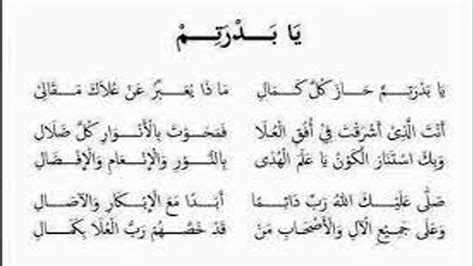 يَا بَـدْرَتِـمْ
يَا بَدْرَتِمْ حَازَ كُلَّ كَمَالِ مَا ذَا يُعَبِّرُ عَنْ عُلَاكَ مَقَالِى
أَنْتَ الَّذِى أَشْرَقْتَ فِى أُفُقِ الْعُلَا فَمَحَوْتَ بِالْأَنْوَارِ كُلَّ ضَلَالِ
وَبِكَ اسْتَنَارَ الْكَوْنُ يَا عَلَمَ الْهُدَى بِالنُّوْرِ وَالْإِنْعَامِ وَالْإِفْضَالِ
صَلَّى عَلَيْكَ اللهُ رَبِّ دَائِمًا أَبَدًا مَعَ الْإِبْكَارِ وَالْآصَالِ
وَعَلَى جَمِيْعِ الْآلِ وَالْأَصْحَابِ مَنْ قَدْ خَصَّهُمْ رَبُّ الْعُلَا بِكَمَالِ